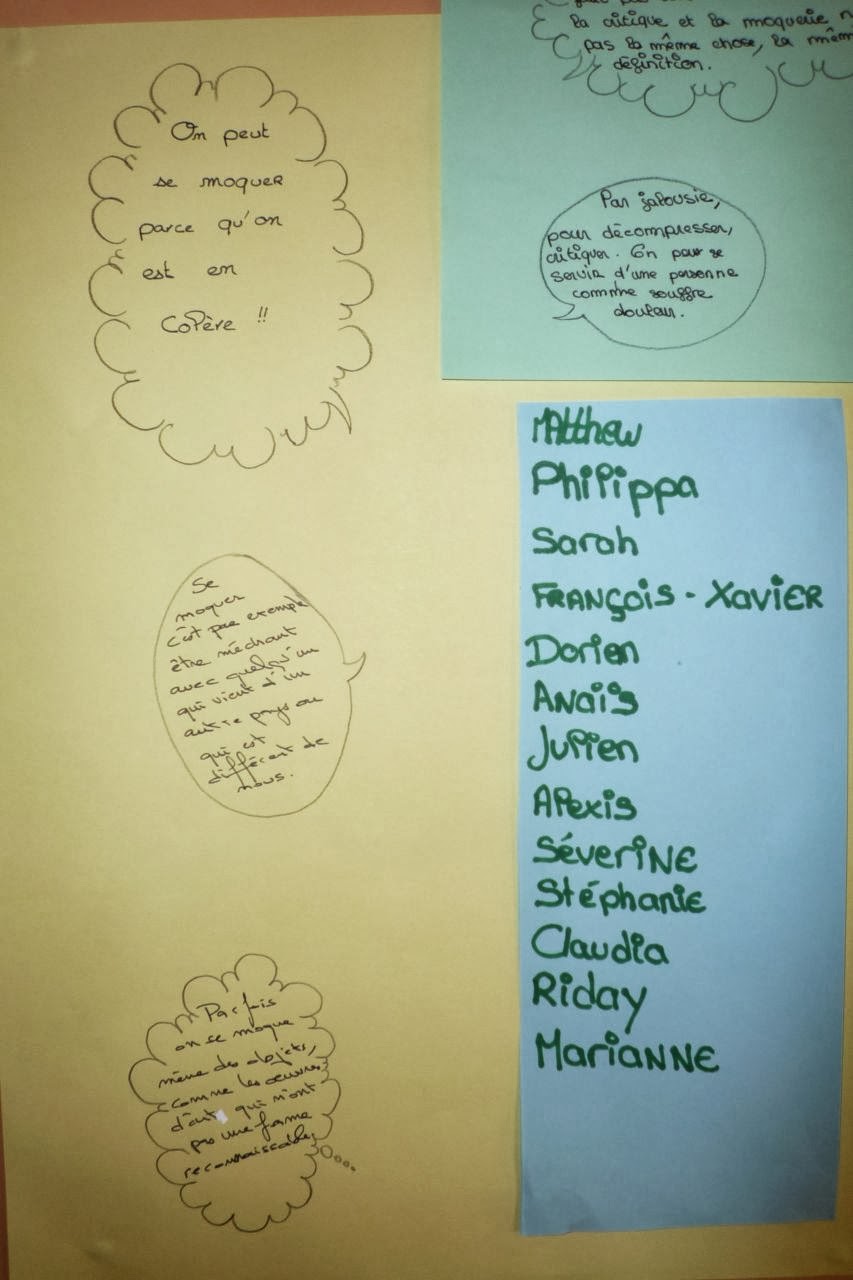 On peut
se moquer
parce qu'on
est en
colère !!
la critique et la moquerie
pas la même chose, la même
définition.
Par jalousie,
pour décompresser,
critiquer. On peur se
servir d'une personne
comme souffre
douleur.
Se
moquer
c'est par exemple
être méchant
avec quelqu'un
qui vient d'un
autre pays ou
qui est
différent de
nous.
Parfois
on se moque
même des objets,
comme les œuvres
d'art qui n'ont
pas une forme
reconnaissable
Matthew
Philippa
Sarah
FRANÇOIS - XAVIER
Dorien
Anaïs
Julien
Alexis
SéveriNE
Stéphanie
Claudia
Riday
MariANNE